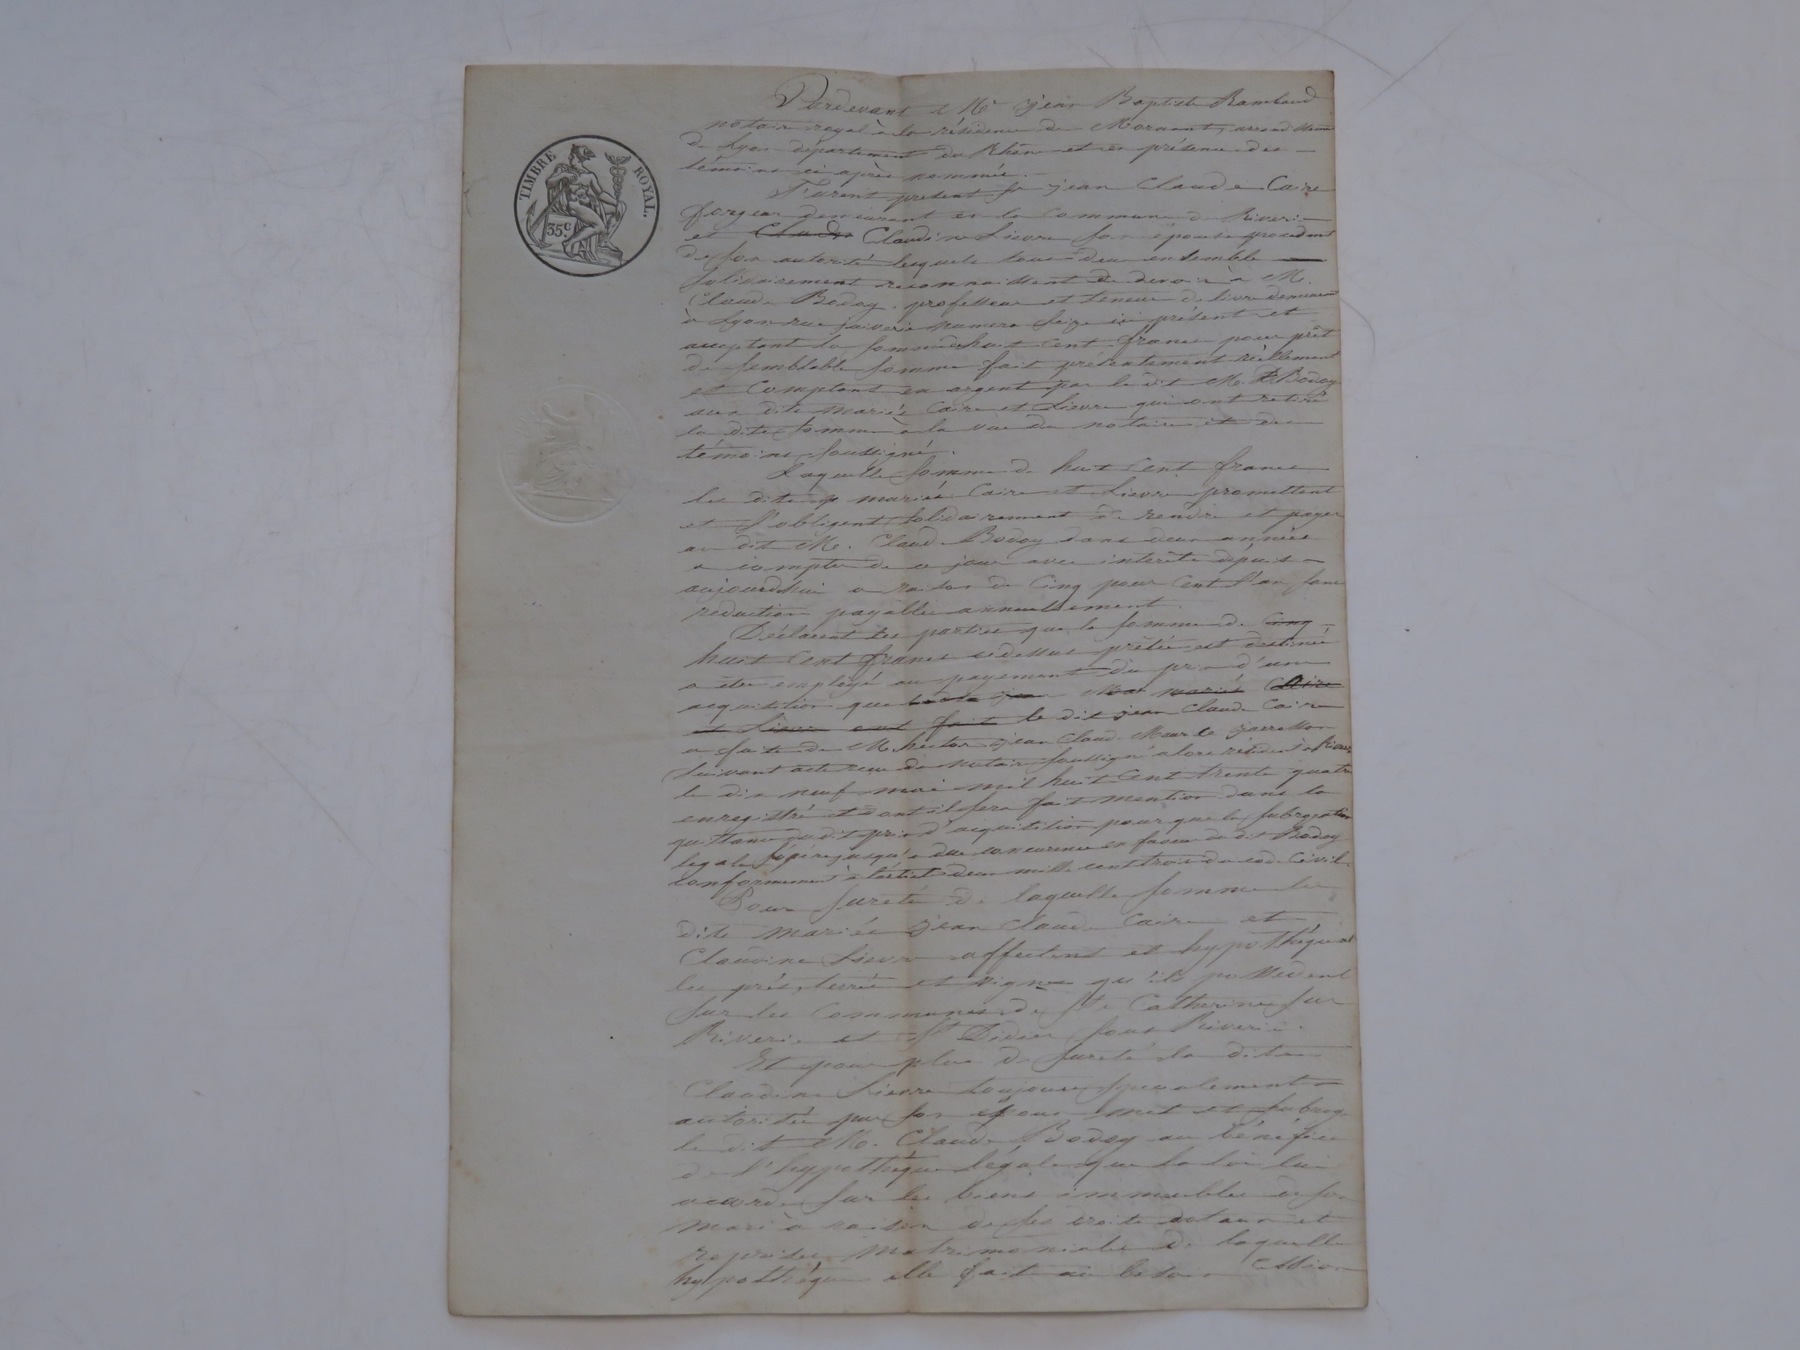 TIMBRE ROYAL.
35 c.
Pardevant Me jean Baptiste Rambaud
notaire royal à la résidence de Mornant, arrondissem
de Lyon département du Rhône et en présence des
témoins ci après nommés.
Furent présent sr jean Claude Caire
forgeur demeurant en la commune de Riverie
et Claude Claudine Lievre son épouse procedant
de son autorité lesquels tous deux ensemble
solidairement reconnaissent de devoir à M.
Claude Bodoy, professeur et teneur de livre demeurant
à Lyon rue numero seize ici présent et
acceptant la somme de huit cent francs pour prêt
de semblable somme fait présentement réellement
et comptant en argent par le dit M. Bodoy
aux dits mariés Caire et Lievre qui ont retiré
la dite somme à la vue du notaire et des
témoins soussignés.
Laquelle somme de huit cent francs
les dits mariés Caire et Lievre promettent
et s'obligent solidairement de rendre et payer
au dit M. Claude Bodoy dans deux années
à compter de ce jour avec intérêts depuis
aujourdhui a raison de cinq pour cent l'an sans
réduction payables annuellement.
Déclarent les parties que la somme de cinq
huit cent francs cidessus prêtée est destinée
a être employé au payement du prix d'une
acquisition que les mariés Caire
et Lievre ont fait le dit jean Claude Caire
a fait de M. hector jean Claude
suivant acte reçu du notaire soussigné alors résident à Riverie
le dix neuf mai mil huit cent trente quatre
enregistré et dont il sera fait mention dans la
quittance du dit prix d'acquisition pour que la subrogation
légale s'opère jusqu'à due concurrence en faveur du dit Bodoy
conformément à l'article deux mille cent trois du code civil.
Pour sureté de laquelle somme les
dits mariés jean Claude Caire et
Claudine Lievre affectent et hypothèquent
les prés, terres et vignes qu'ils possèdent
sur les communes de Ste Catherine sur
Riverie et St Didier sous Riverie.
Et pour plus de sureté la dite
Claudine Lievre toujours spécialement
autorisée par son époux met et subroge
le dit M. Claude Bodoy au bénéfice
de l'hypothèque légale que la loi lui
accorde sur les biens immeubles de son
mari à raison de ses droits dotaux et
reprises matrimoniales de laquelle
hypothèque elle fait au besoin cession